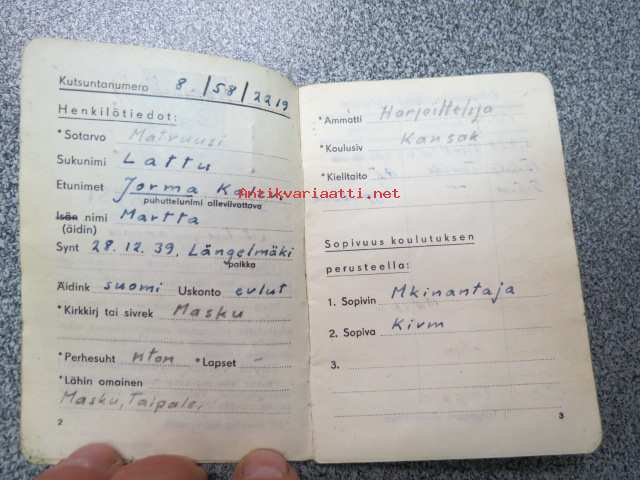 Kutsuntanumero 8./58/2219
Henkilötiedot:
*Sotarvo Matruusi
Sukunimi Lattu
Etunimet Jorma
puhuttelunimi alleviivattava
Isän nimi Martta
(äidin)
Synt 28.12.39, Längelmäki
paikka
Äidink suomi Uskonto evlut
*Kirkkirj tai sivrek Masku
*Perhesuht nton *Lapset -
*Lähin omainen
Masku, Taipale,
2
*Ammatti Harjoittelija
*Koulusiv Kansak
*Kielitaito
Sopivuus koulutuksen
perusteella:
1. Sopivin Mkinantaja
2. Sopiva Kivm
3.
3
Antikvariaatti.net